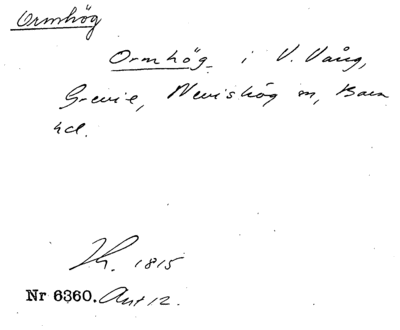 Ormhög
Ormhög i V. Vång,
Grevie, Mevishög m, Bara
hd.
Kh. 1815
Nr 6360. Ant 12.